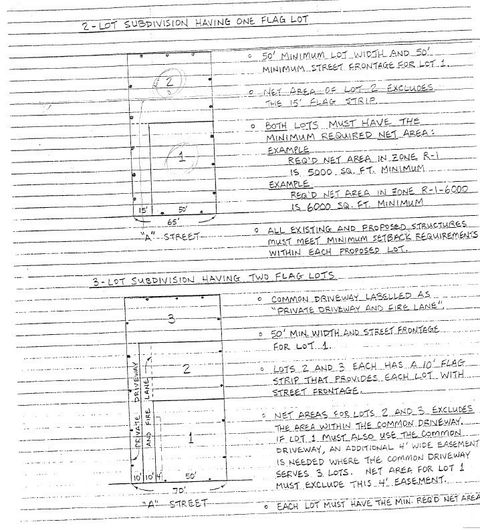 2-LOT SUBDIVISION HAVING ONE FLAG LOT
2
1
15'
50'
65'
"A" STREET
o 50' MINIMUM LOT WIDTH AND 50'
MINIMUM STREET FRONTAGE FOR LOT 1.
o NET AREA OF LOT 2 EXCLUDES
THE 15' FLAG STRIP.
o BOTH LOTS MUST HAVE THE
MINIMUM REQUIRED NET AREA:
EXAMPLE
REQ'D NET AREA IN ZONE R-1
IS 5000 SQ. FT. MINIMUM
EXAMPLE
REQ'D NET AREA IN ZONE R-1-6000
IS 6000 SQ. FT. MINIMUM
o ALL EXISTING AND PROPOSED STRUCTURES
MUST MEET MINIMUM SETBACK REQUIREMENTS
WITHIN EACH PROPOSED LOT.
3-LOT SUBDIVISION HAVING TWO FLAG LOTS
3
2
1
PRIVATE DRIVEWAY
AND FIRE LANE
10'
10'
4'
50'
70'
"A" STREET
o COMMON DRIVEWAY LABELLED AS
"PRIVATE DRIVEWAY AND FIRE LANE".
o 50' MIN. WIDTH AND STREET FRONTAGE
FOR LOT 1.
o LOTS 2 AND 3 EACH HAS A 10' FLAG
STRIP THAT PROVIDES EACH LOT WITH
STREET FRONTAGE.
o NET AREAS FOR LOTS 2 AND 3 EXCLUDES
THE AREA WITHIN THE COMMON DRIVEWAY.
IF LOT 1 MUST ALSO USE THE COMMON
DRIVEWAY, AN ADDITIONAL 4' WIDE EASEMENT
IS NEEDED WHERE THE COMMON DRIVEWAY
SERVES 3 LOTS. NET AREA FOR LOT 1
MUST EXCLUDE THIS 4' EASEMENT.
o EACH LOT MUST HAVE THE MIN. REQ'D NET AREA